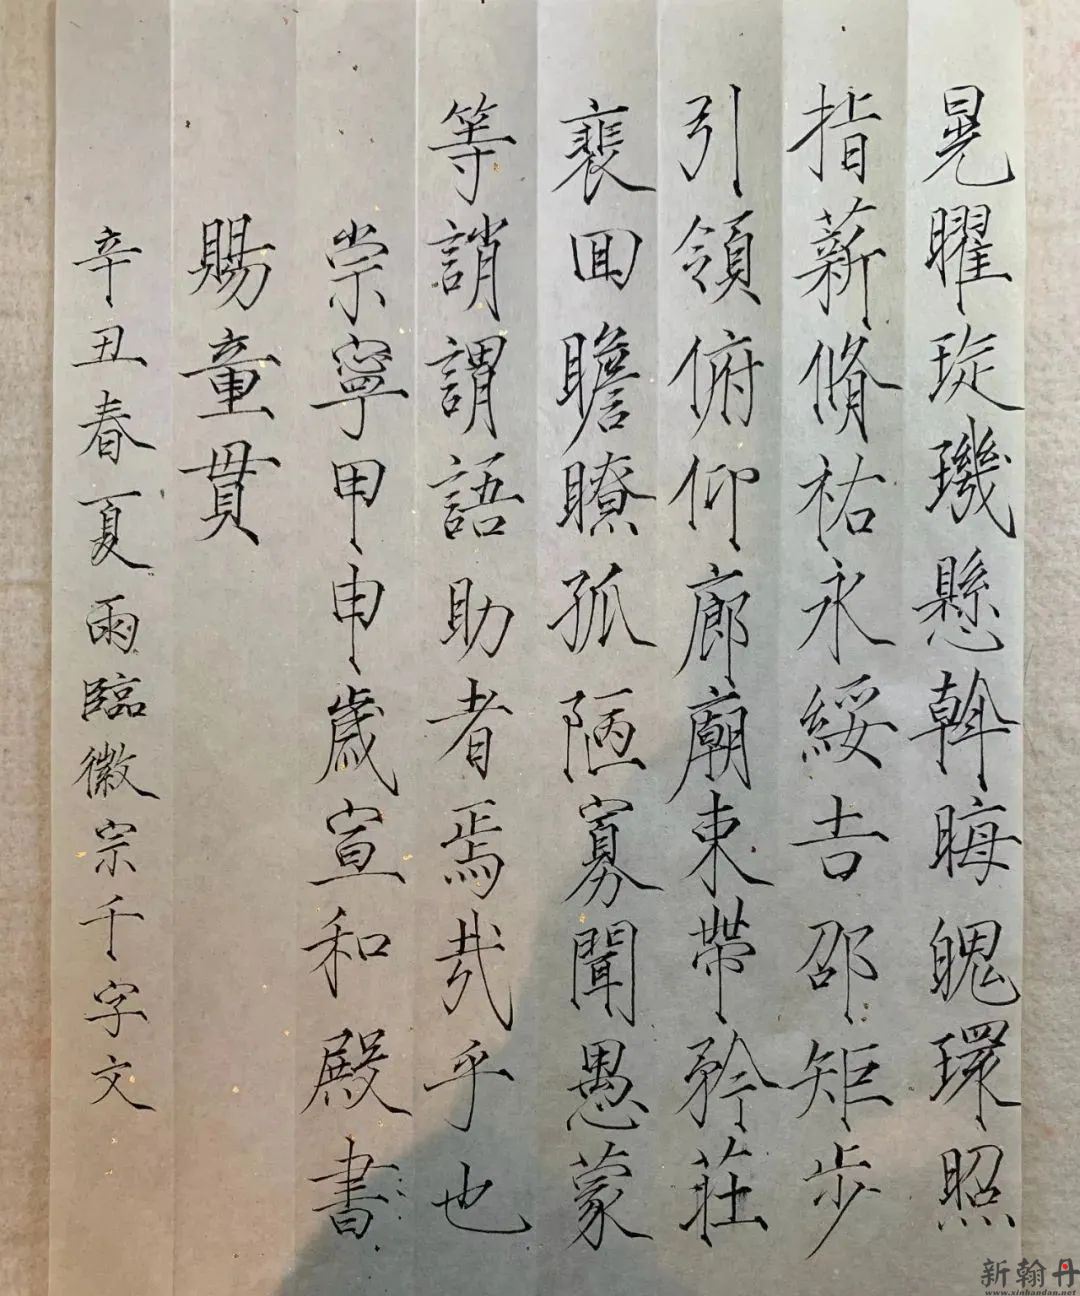 晃曜琁璣懸斡晦魄環照
指薪脩祐永綏吉邵矩步
引領俯仰廊廟束帶矜莊
裵回瞻瞭孤陋寡聞愚蒙
等誚謂語助者焉哉乎也
崇寧甲申歲宣和殿書
賜童貫
辛丑春夏雨臨徽宗千字文
新翰丹
www.xinhandan.net